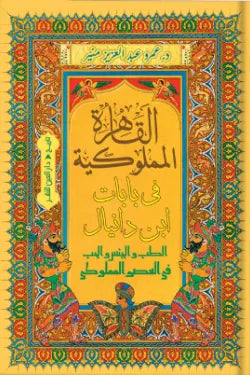 د. عمرو عبد العزيز منير
القاهرة
المملوكية
فى بابات
ابن دانيال
الطب والجنس والحب
في العصر المملوكي